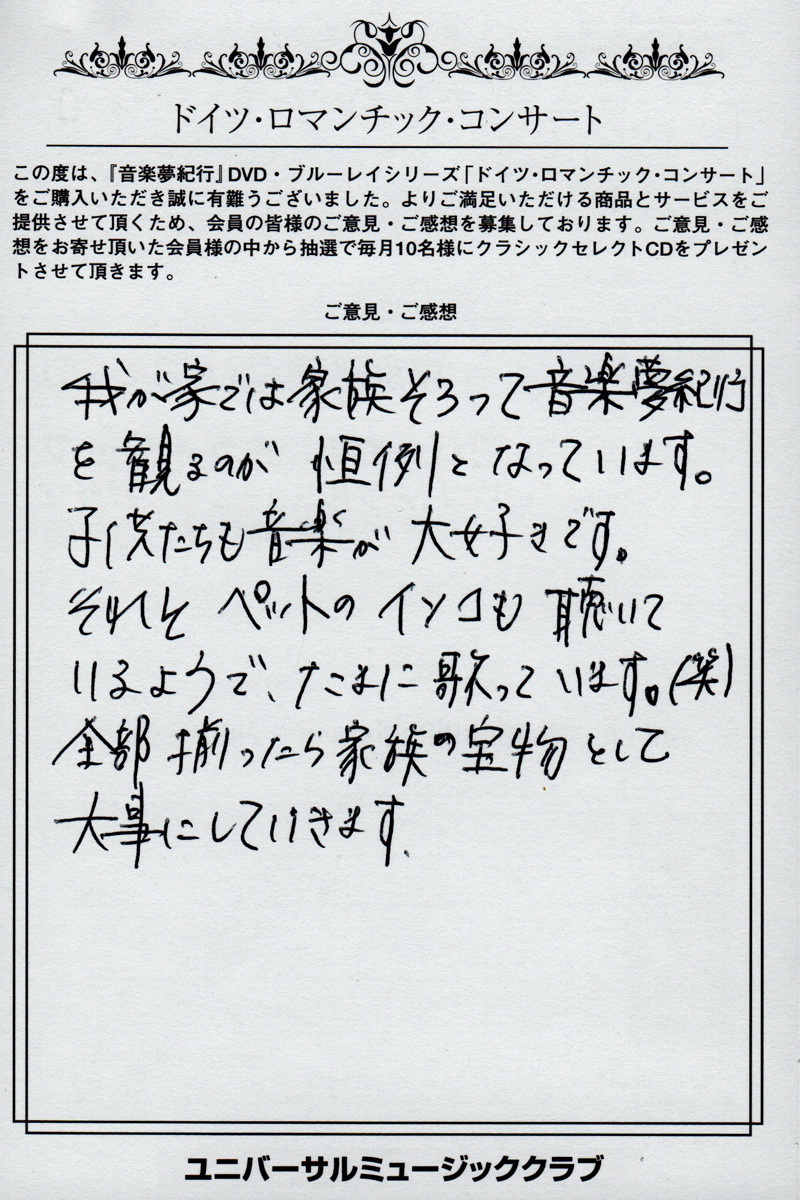 ドイツ・ロマンチック・コンサート
この度は、『音楽夢紀行』DVD・ブルーレイシリーズ「ドイツ・ロマンチック・コンサート」
をご購入いただき誠に有難うございました。よりご満足いただける商品とサービスをご
提供させて頂くため、会員の皆様のご意見・ご感想を募集しております。ご意見・ご感
想をお寄せ頂いた会員様の中から抽選で毎月10名様にクラシックセレクトCDをプレゼン
トさせて頂きます。
ご意見・ご感想
我が家では家族そろって音楽夢紀行
を観るのが恒例となっています。
子供たちも音楽が大好きです。
それとペットのインコも聴いて
いるようで、たまに歌っています。(笑)
全部揃ったら家族の宝物として
大事にしていきます.
ユニバーサルミュージッククラブ